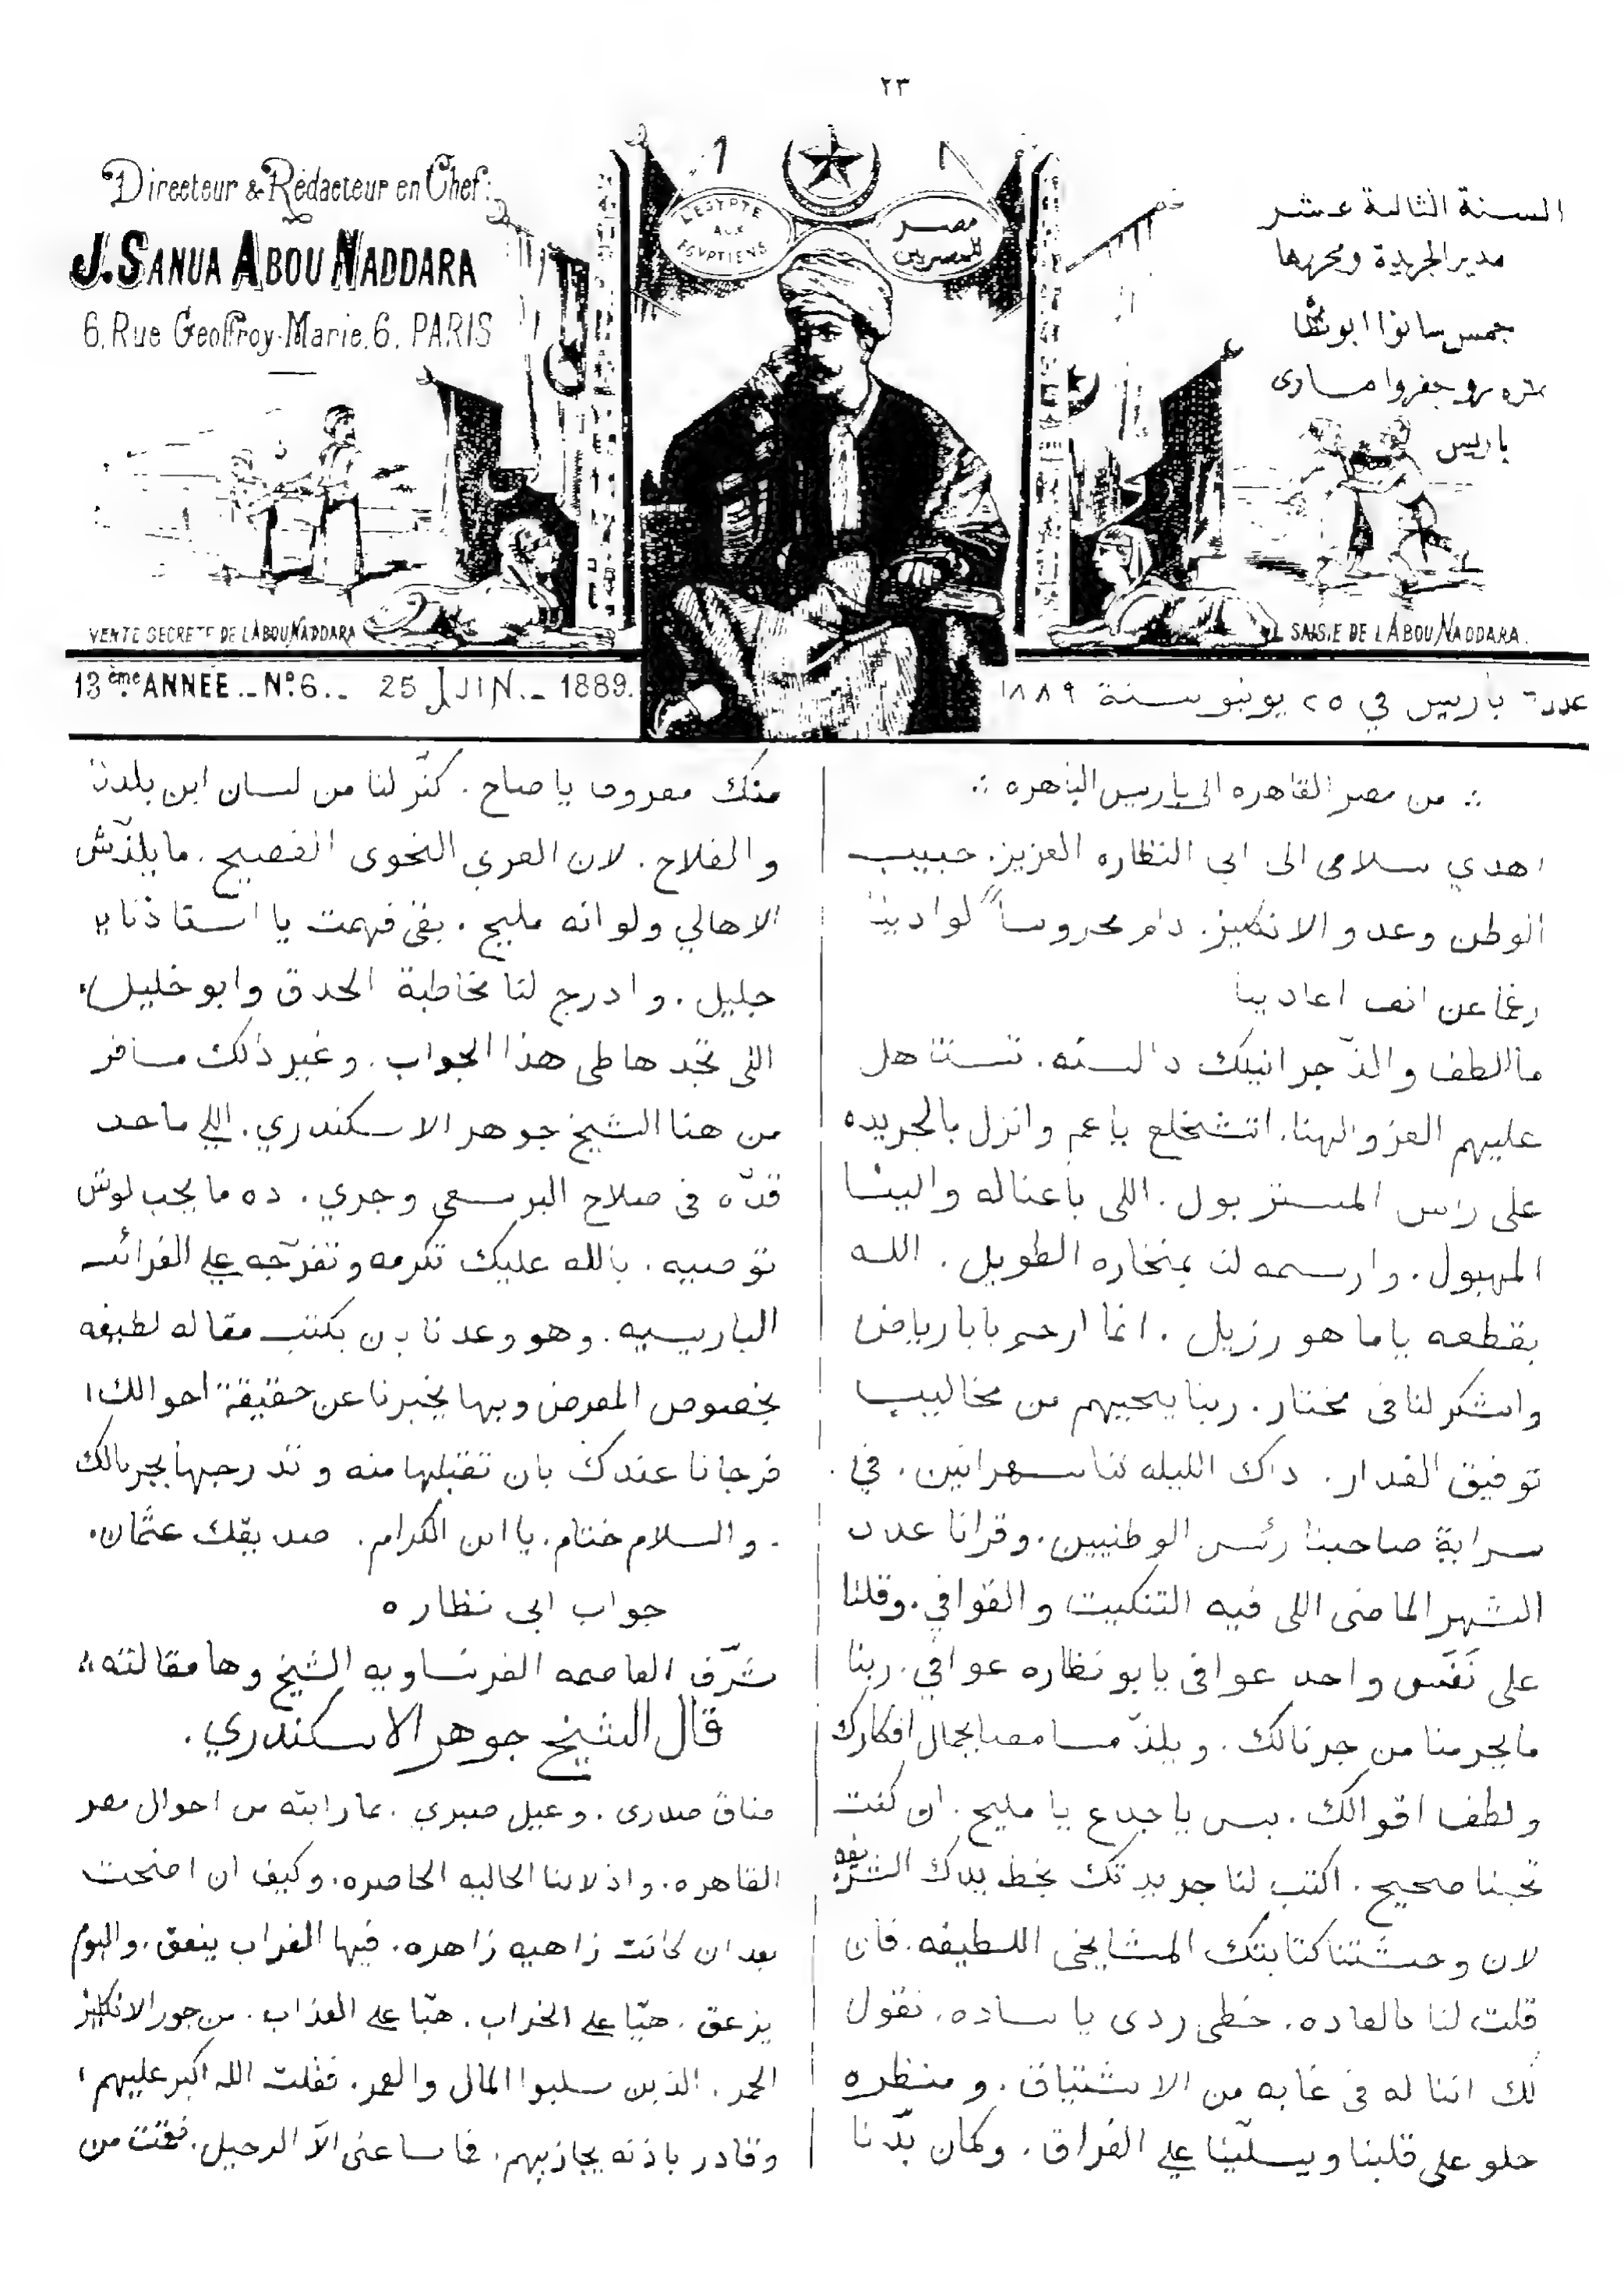 ٢٣
Directeur & Rédacteur en Chef:
J. SANUA ABOU NADDARA
6, Rue Geoffroy-Marie, 6, PARIS
L'EGYPTE
AUX
EGYPTIENS
مصر
للمصريين
السنة الثالثة عشر
مدير الجريدة ومحررها
جمس سانوا ابو نظارة
نمره ٦ رو جفروا ماری
باريس
VENTE SECRETE DE L'ABOU NADDARA
SAISIE DE L'ABOU NADDARA.
13ème ANNEE._ Nº 6._ 25 JUIN._ 1889.
عدد ٦ باريس في ٢٥ يونيو سنة ١٨٨٩
من مصر القاهره الى باريس الباهره
اهدي سلامى الى ابى النظاره العزيز. حبيب
الوطن وعدو الانكليز. دام محروساً لوادينا
رغما عن انف اعادينا
ما الطف والذّ جرانيلك دالسنه. تستاهل
عليهم العز والهنا. اتشخلع ياعم وانزل بالجريده
على راس المستر بول. اللى باعنا له والينا
المهبول. وارسمه لنا بمنخاره الطويل. الله
يقطعه ياما هو رزيل. انما ارحم بابا رياض
واشكر لنا فى مختار. ربنا يحييهم من مخاليب
توفيق الغدار. داك الليله كنا سهرانين. في
سراية صاحبنا رئس الوطنيين. وقرانا عدد
الشهر الماضى اللى فيه التنكيت والقوافي. وقلنا
على نَفَس واحد عوافى يابو نظاره عوافي. ربنا
مايحرمنا من جرنالك. ويلذّ مسامعنا بجمال افكارك
ولطف اقوالك. بس ياجدع يا مليح. ان كنت
تحبنا صحيح. اكتب لنا جريدتك بخط يدك الشريفه
لان وحشتنا كتابتك المشايخى اللطيفه. فان
قلت لنا كالعاده. خطى ردى يا ساده. نقول
لك اننا له فى غايه من الاشتياق. ومنظره
حلو على قلبنا ويسلّينا على الفراق. وكمان بدّنا
منك معروف يا صاح. كتّر لنا من لسان ابن بلدنا
والفلاح. لان العربى النحوى الفصيح. مايلذّش
الاهالي ولو انه مليح. بقى فهمت يا استاذنا يا
جليل. وادرج لنا مخاطبة الحدق وابو خليل.
اللى تجدها طى هذا الجواب. وغير ذلك مسافر
من هنا الشيخ جوهر الاسكندري. اللي ماحد
قدّه فى صلاح البر سعى وجري. ده مايجب لوش
توصيه. بالله عليك تكرمه وتفرّجه على الغرائب
الباريسيه. وهو وعدنا بان يكتب مقاله لطيفه
بخصوص المعرض وبها يخبرنا عن حقيقة احوالك
فرجانا عندك بان تقبلها منه وتدرجها بجرنالك
والسلام ختام. يا ابن الكرام. صديقك عثمان.
جواب ابى نظاره
شرّف العاصمه الفرنساويه الشيخ وها مقالته
قال الشيخ جوهر الاسكندري.
ضاق صدرى. وعيل صبري. مما رايته من احوال مصر
القاهره. واذلالنا الحاليه الحاضره. وكيف ان اضحت
بعد ان كانت زاهيه زاهره. فيها الغراب ينعق. والبوم
يزعق. هيّا على الخراب. هيّا على العذاب. من جور الانكليز
الحمر. الذين سلبوا المال والعمر. فقلت الله اكبر عليهم
وقادر باذنه يجازيهم. فما ساعنى الاّ الرحيل. فقمت من